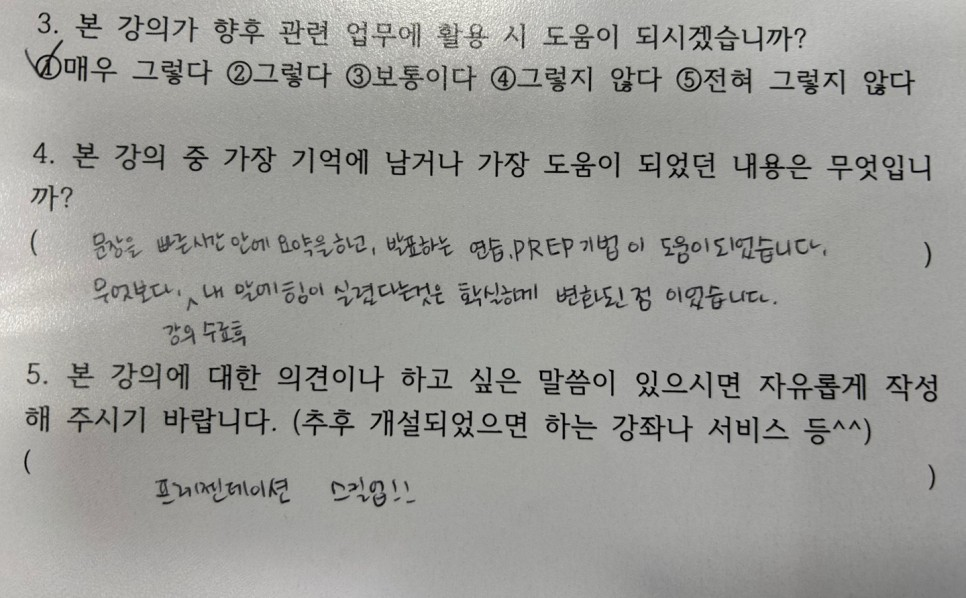 3. 본 강의가 향후 관련 업무에 활용 시 도움이 되시겠습니까?
①매우 그렇다 ②그렇다 ③보통이다 ④그렇지 않다 ⑤전혀 그렇지 않다
4. 본 강의 중 가장 기억에 남거나 가장 도움이 되었던 내용은 무엇입니
까?
( 문장을 빠른시간 안에 요약을하고, 발표하는 연습, PREP기법이 도움이되었습니다. )
무엇보다, 내 말에 힘이 실렸다는것은 확실하게 변화된 점 이었습니다.
강의 수료후
5. 본 강의에 대한 의견이나 하고 싶은 말씀이 있으시면 자유롭게 작성
해 주시기 바랍니다. (추후 개설되었으면 하는 강좌나 서비스 등^^)
( )
프레젠테이션 스킬업!!